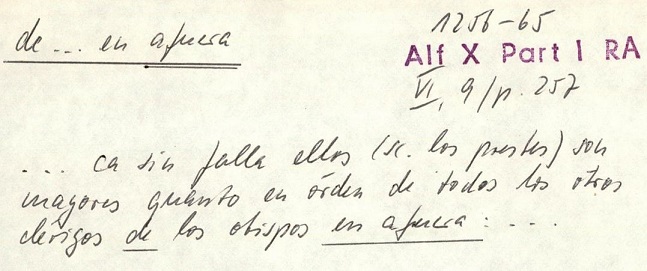 de ... en afuera
1256-65
Alf X Part I RA
VI, 9/p. 257
.... ca sin falla ellos (sc. los prestes) son
mayores quanto en órden de todos los otros
clérigos de los obispos en afuera: ....